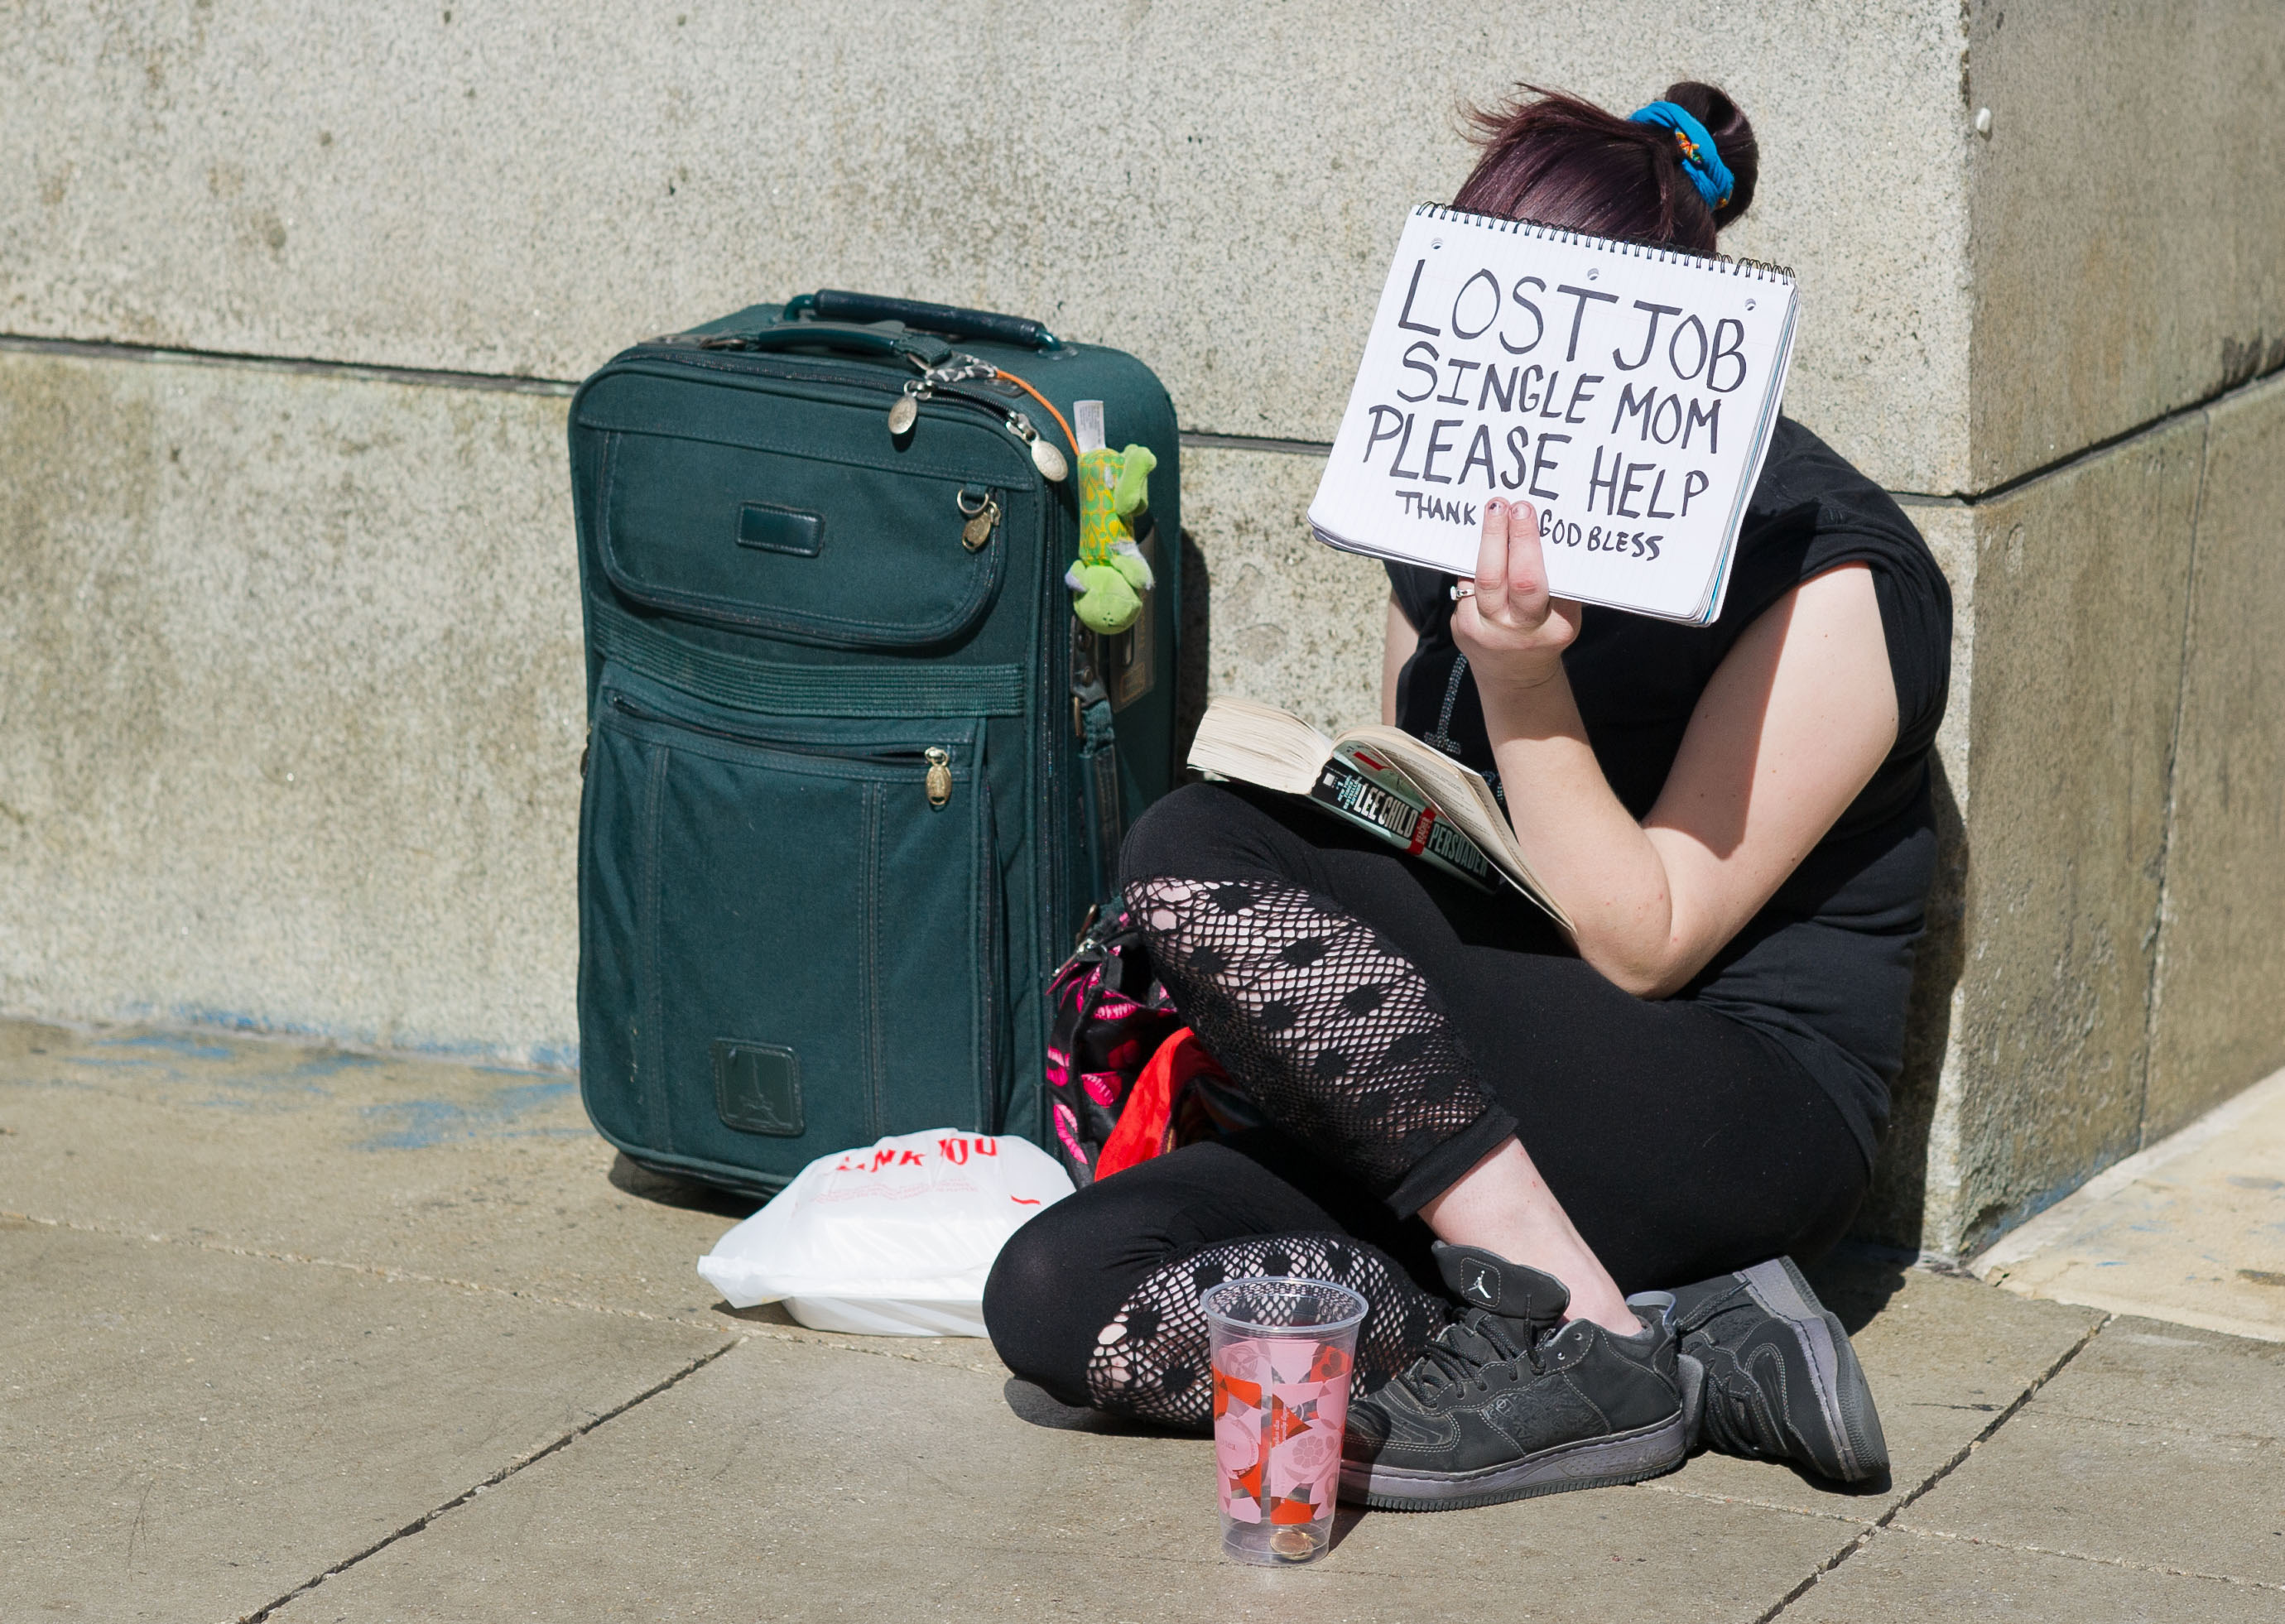 LOST JOB
SINGLE MOM
PLEASE HELP
THANK GOD BLESS
LEE CHILD
PERSUADER
THANK YOU